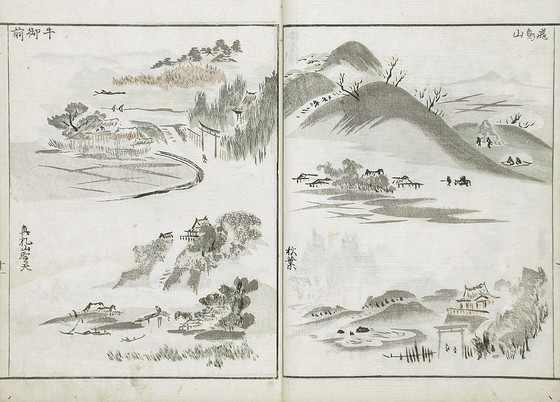 飛鳥山
秋葉
牛御前
真乳山聖天